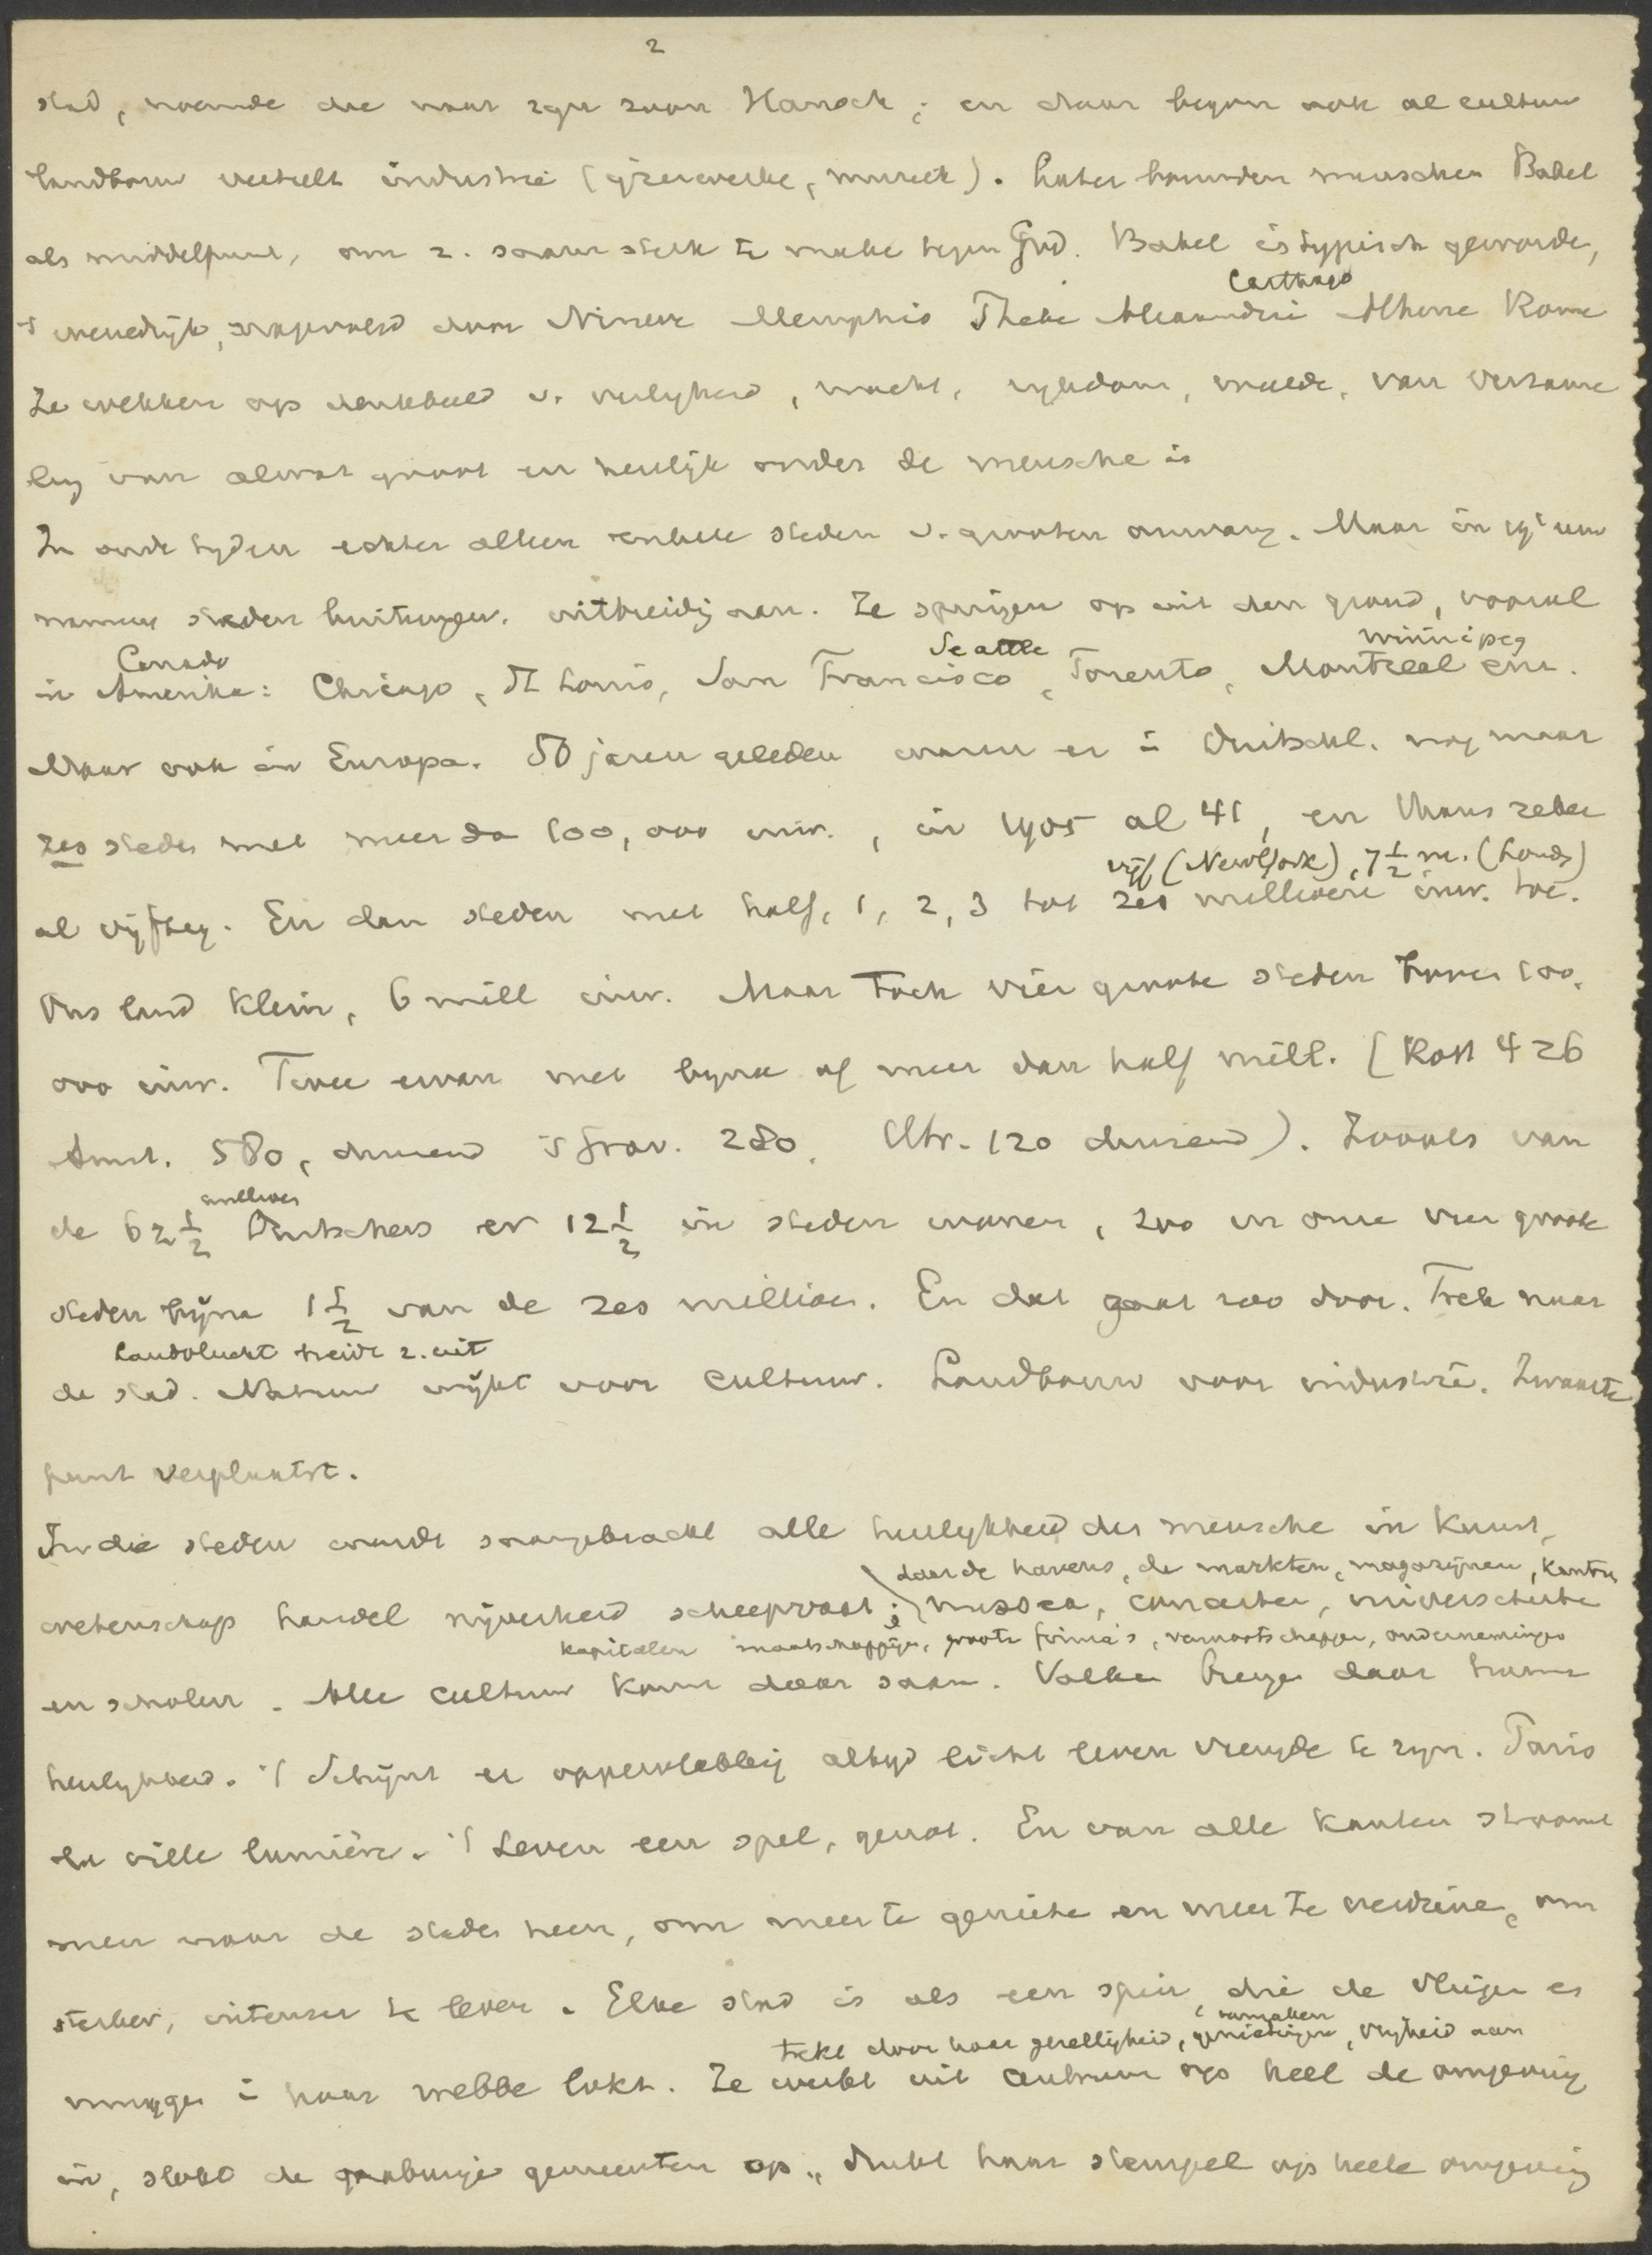 2
stad, noemde die naar zijn zoon Hanoch; en daar begon ook al cultuur
landbouw veeteelt industrie (ijzerwerke, muziek). Later bouwden menschen Babel
als middelpunt, om z. saam sterk te make tegen God. Babel is typisch geworde,
Carthago
't wereldrijk, opgevolgd door Nineve Memphis Thebe Alexandrië Athene Rome
Ze wekken op denkbeeld v. veiligheid, macht, rijkdom, weelde, van verzame
ling van alwat groot en heerlijk onder de mensche is
In oude tijden echter alleen enkele steden v. grooten omvang. Maar in 19e eeuw
namen steden buitengew. uitbreidg aan. Ze springen op uit den grond, vooral
Canada Seattle Winnipeg
in Amerika: Chicago, St Louis, San Francisco, Toronto, Montreal enz.
Maar ook in Europa. 50 jaren geleden waren er i Duitschl. nog maar
zes steden met meer da 100,000 inw., in 1905 al 41, en thans zeker
vijf (NewYork), 7½ m. (Londn)
al vijftig. En dan steden met half, 1, 2, 3 tot zes millioen inw. toe.
Ons land klein, 6 mill inw. Maar toch vier groote steden boven 100,
000 inw. Twee ervan met bijna of meer dan half mill. (Rott 426
Amst. 580, duizend 's Grav. 280, Utr. 120 duizend). Zooals van
millioen
de 62½ Duitschers er 12½ in steden wonen, zoo in onze vier groote
steden bijna 1½ van de zes millioen. En dat gaat zoo door. Trek naar
Landvlucht breidt z. uit
de stad. Natuur wijkt voor cultuur. Landbouw voor industrie. Zwaarte
punt verplaatst.
In die steden wordt saamgebracht alle heerlykheid der mensche in kunst,
daar de havens, de markten, magazijnen, kantn
wetenschap handel nijverheid scheepvaart; musea, concerten, universiteite
kapitalen maatschappijen, groote firma's, vennootschappe, ondernemingen
en scholen. Alle cultuur komt daar saam. Volken brengen daar hunne
heerlykheid. 't Schijnt er oppervlakkig altijd licht leven vreugde te zijn. Paris
la ville lumière. 't Leven een spel, genot. En van alle kanten stroomt
men naar de steden heen, om meer te geniete en meer te verdiene, om
sterker, intenser te leven. Elke stad is als een spin, die de vliegen en
vermaken
trekt door haar gezelligheid, genietingen, vrijheid aan
muggen i haar webbe lokt. Ze werkt uit centrum op heel de omgeving
in, slokt de naburige gemeenten op, drukt haar stempel op heele omgeving